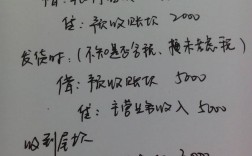 贷：预收账款 2000
发货时：（不知是否含税，暂未考虑税）
借：预收账款 5000
贷：主营业务收入 5000
收到尾款